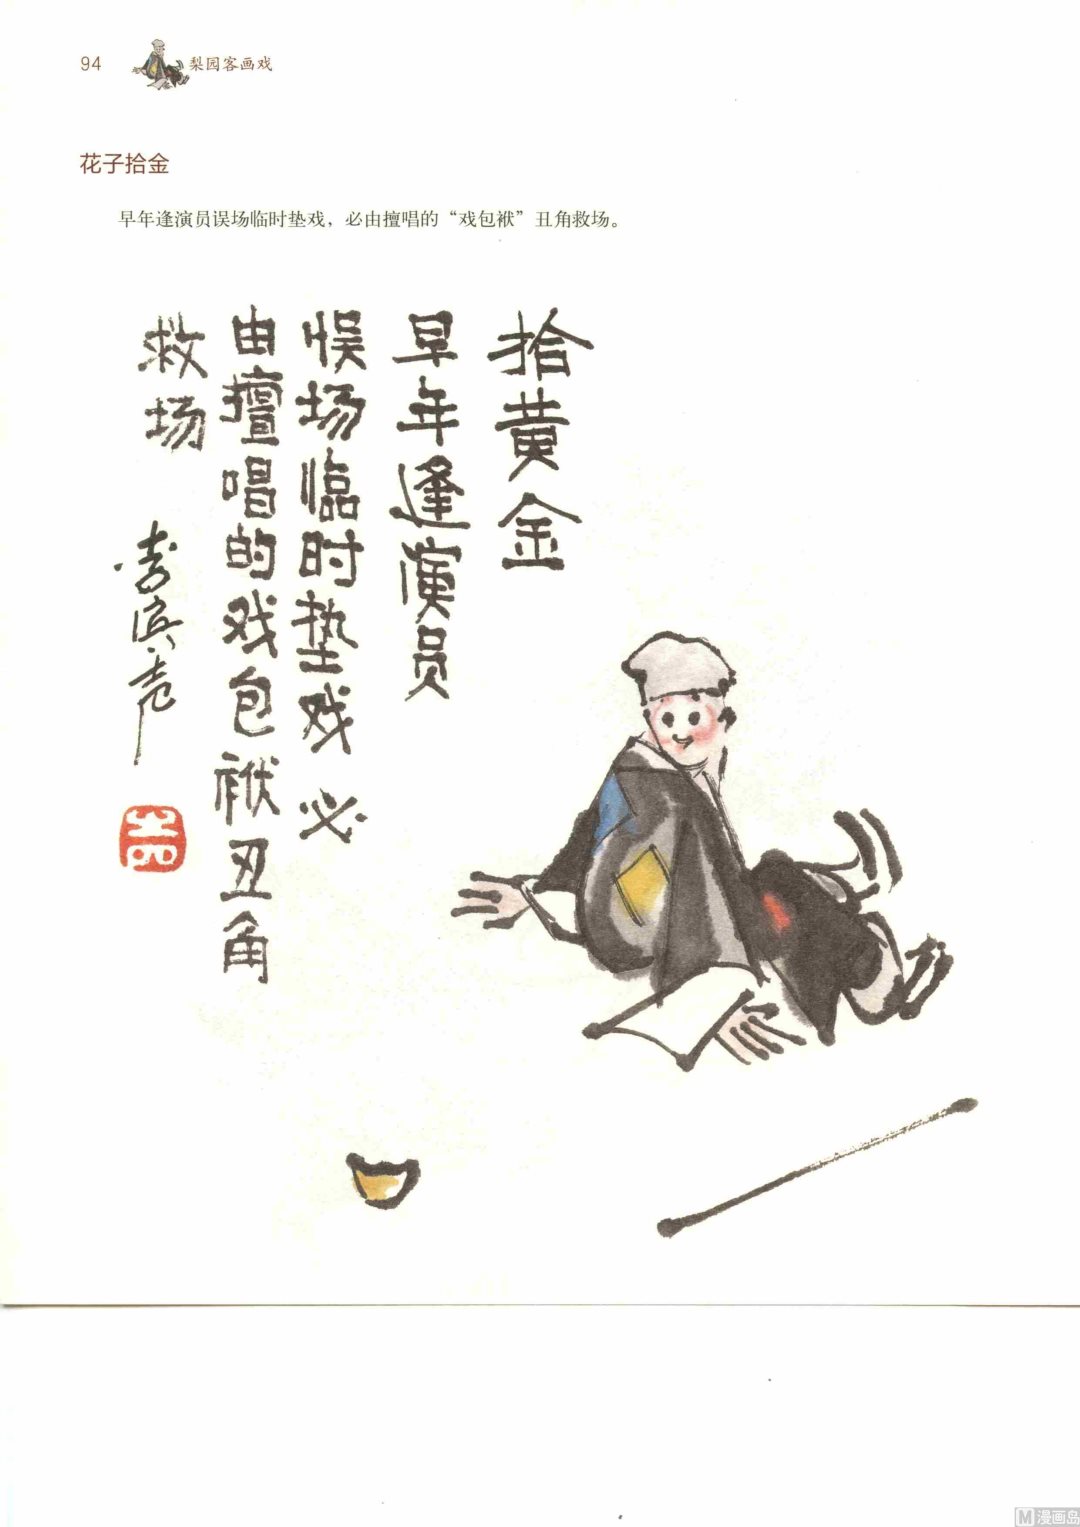 94
梨园客画戏
花子拾金
早年逢演员误场临时垫戏，必由擅唱的“戏包袱”丑角救场。
拾黄金
早年逢演员
悮场临时垫戏必
由擅唱的戏包袱丑角
救场
李滨声
漫画岛